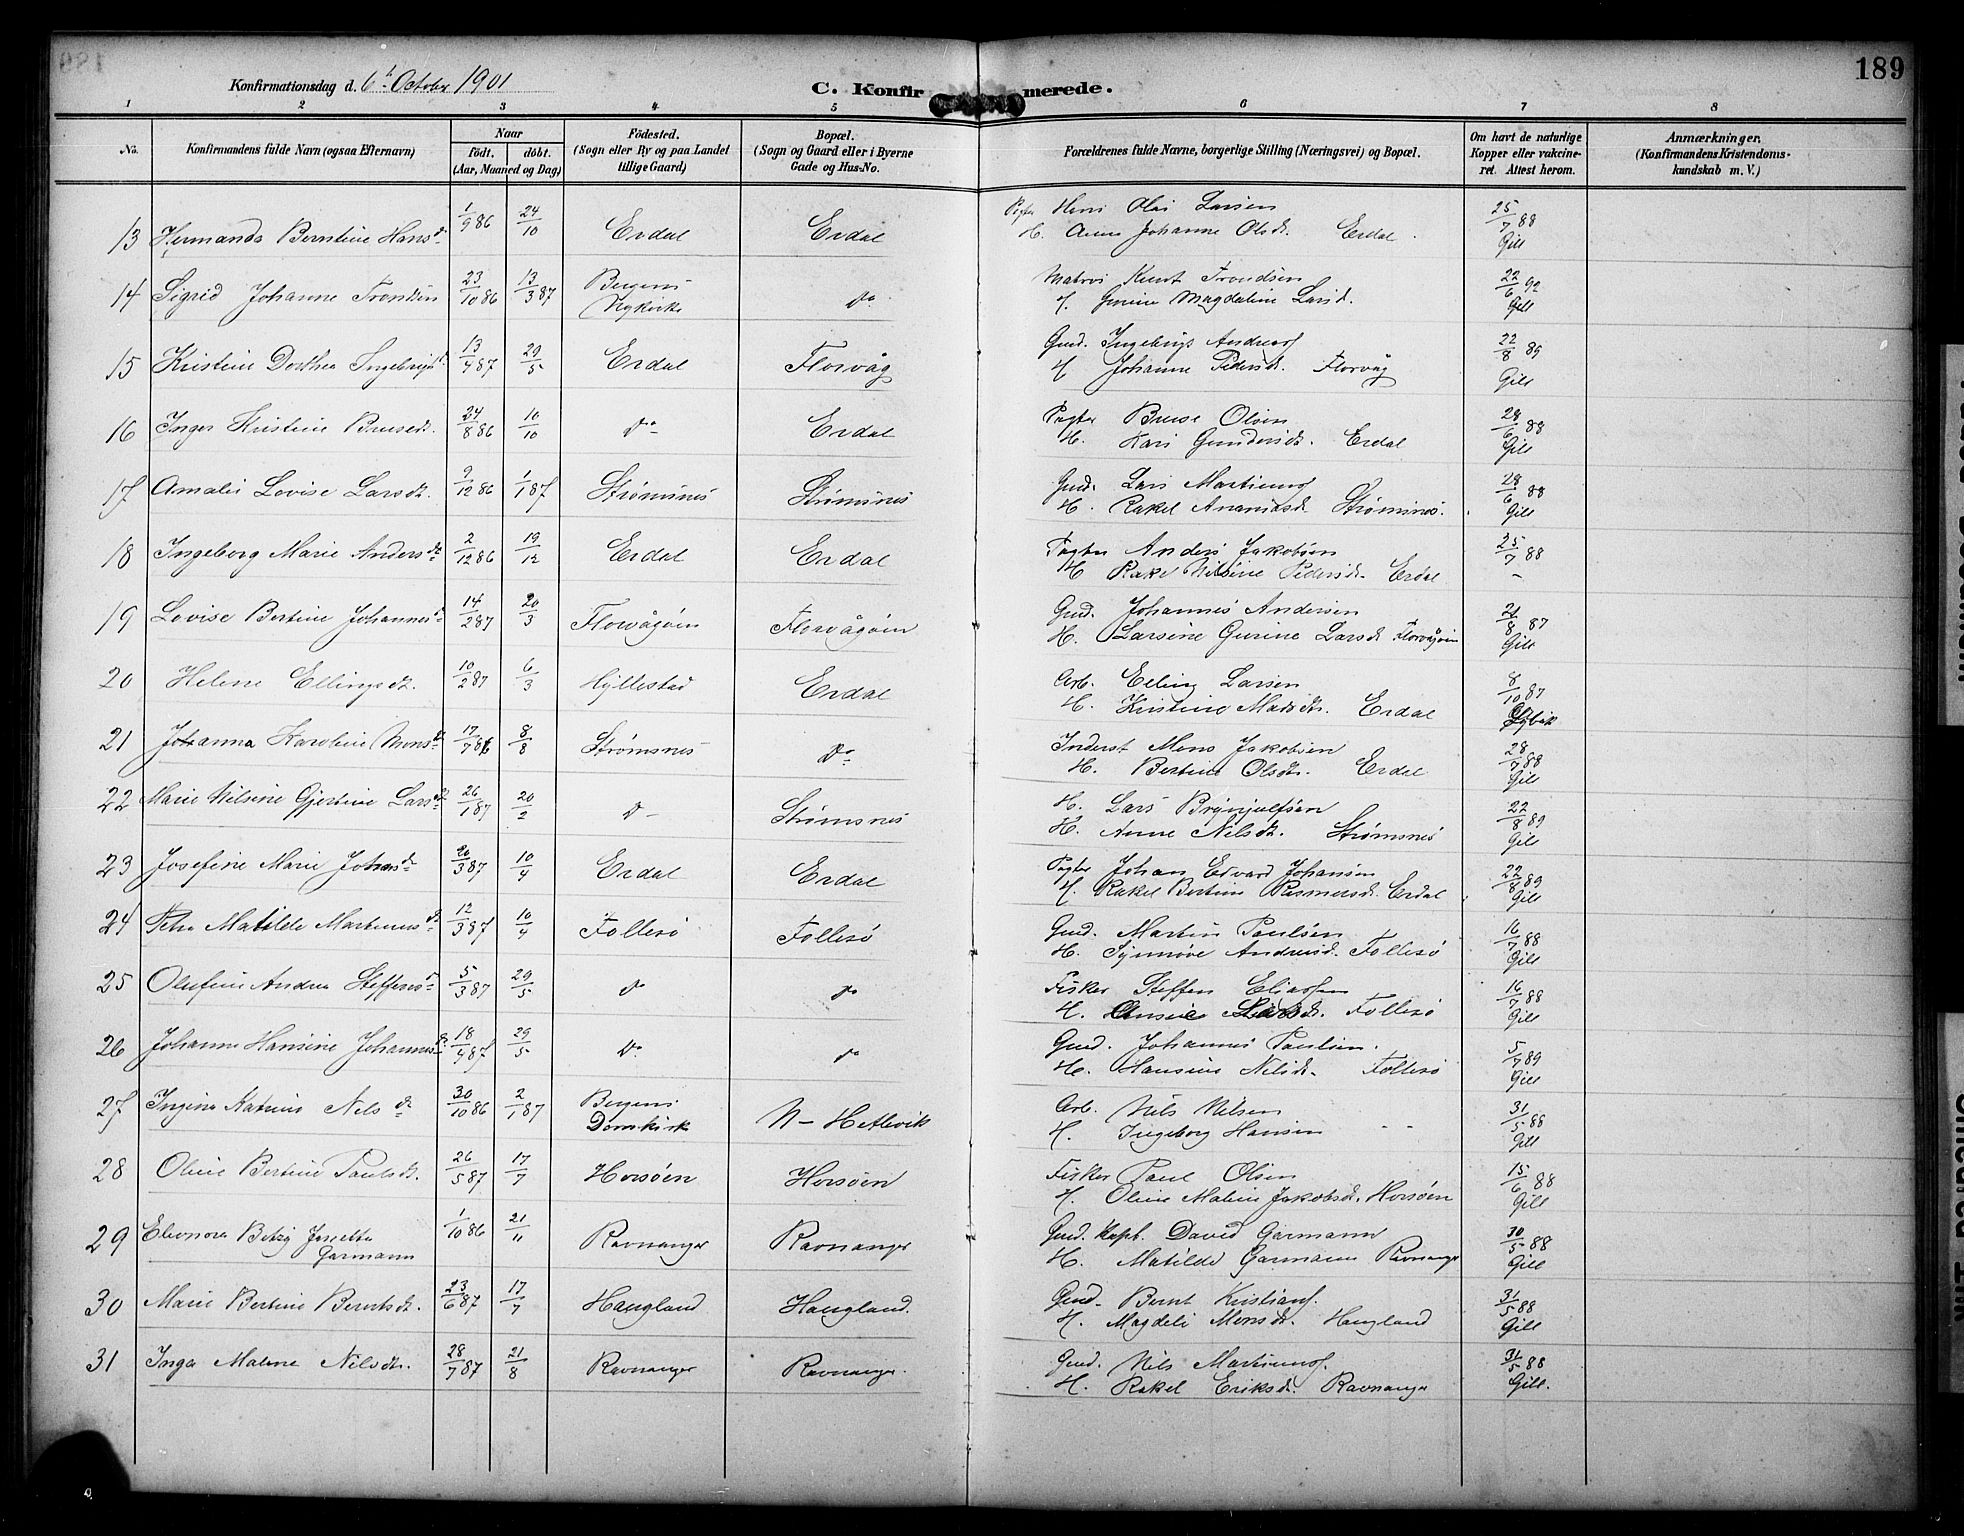 189
Konfirmationsdag d. 6t October 1901
C. Konfirmerede.
1 2 3 4 5 6 7 8
No. Konfirmandens fulde Navn (ogsaa Efternavn) Naar födt. döbt. (Aar, Maaned og Dag) Födested. (Sogn eller By og paa Landet tillige Gaard) Bopæl. (Sogn og Gaard eller i Byerne Gade og Hus-No. Forældrenes fulde Navne, borgerlige Stilling (Næringsvei) og Bopæl. Om havt de naturlige Kopper eller vakcineret. Attest herom. Anmærkninger. (Konfirmandens Kristendomskundskab m. V.)
13 Hermanda Berntine Hansd. 1/9 86 24/10 Erdal Erdal Pagter Hans Olai Larsen 25/7 88
H. Anna Johanne Olsdt. Erdal. Gill
14 Sigrid Johanne Trondsen 23/10 86 13/3 87 Bergens Nykirke do Matros Knut Trondsen 22/6 92
H. Gurine Magdaline Larsd. Gill
15 Kristine Dorthea Ingebrigtd. 13/4 87 29/5 Erdal Florvåg Gmd. Ingebrigt Andreas 22/8 89
H Johanne Pedersdt. Florvåg Gill
16 Inger Kristine Brusedt. 24/8 86 10/10 do Erdal Pagter Bruse Olsen 28/6 88
H. Kari Gundersdt. Erdal Gill
17 Amalie Lovise Larsdt. 9/12 86 1/1 87 Strømsnes Strømsnes Gmd. Lars Martinus 28/6 88
H. Rakel Ananiasd. Strømsnes. Gill
18 Ingeborg Marie Andersdt 2/12 86 19/12 Erdal Erdal Pagter Anders Jakobsen 25/7 88
H Rakel Nilsine Pedersdt. Erdal –
19 Lovise Bertine Johannesd. 14/2 87 20/3 Florvågøen Florvågøen Gmd. Johannes Andersen 21/8 87
H. Larsine Gurine Larsdt Florvågøen Gill
20 Helene Ellingsdt. 10/2 87 6/3 Hyllestad Erdal Arb. Elling Larsen 8/10 87
H. Kristine Madsdt. Erdal
21 Johanna Karoline Monsdt 17/7 86 8/8 Strømsnes do Inderst Mons Jakobsen 28/7 88
H. Bertine Olsdt. Erdal Gill
22 Marie Nilsine Gjertine Larsdt 26/1 87 20/2 do Strømsnes H. Lars Brynjulfsen 22/8 89
H. Anne Nilsdt. Strømsnes Gill
23 Josefine Marie Johansd. 20/3 87 10/4 Erdal Erdal Pagter Johan Edvard Johansen 22/8 89
H. Rakel Bertine Rasmusdt. Erdal Gill
24 Petra Matilde Martinusdt 12/3 87 10/4 Follesø Follesø Gmd. Martin Paulsen 16/7 88
H. Synnøve Andreasd. Follesø Gill
25 Olufine Andrea Steffensd. 5/3 87 29/5 do do Fisker Steffen Eliassen 16/7 88
H. Larsdt. Follesø Gill
26 Johanne Hansine Johannesdt. 18/4 87 29/5 do do Gmd. Johannes Paulsen. 5/7 89
H. Hansine Nilsdt. Follesø Gill
27 Ingine Katrine Nilsdt 30/10 86 2/1 87 Bergens Domkirk N–Hetlevik Arb. Nils Nilsen 31/5 88
H. Ingeborg Hansen " " Gill
28 Oline Bertine Paulsdt. 26/5 87 17/7 Horsøen Horsøen Fisker Paul Olsen 15/6 88
H. Oline Malene Jakobsdt. Horsøen Gill
29 Eleonora Betzy Garmann 1/10 86 21/11 Ravnanger Ravnanger Gmd. Kapt. David Garmann 30/5 88
H. Matilde Garmann Ravnanger Gill
30 Marie Bertine Berntsdt. 23/6 87 17/7 Haugland Haugland. Gmd. Bernt Kristians. 31/5 88
H. Magdeli Monsdt. Haugland Gill
31 Inga Malene Nilsdt. 28/7 87 21/8 Ravnanger Ravnanger. Gmd. Nils Martinus. 31/5 88
H. Rakel Eriksdt. Ravnanger Gill.